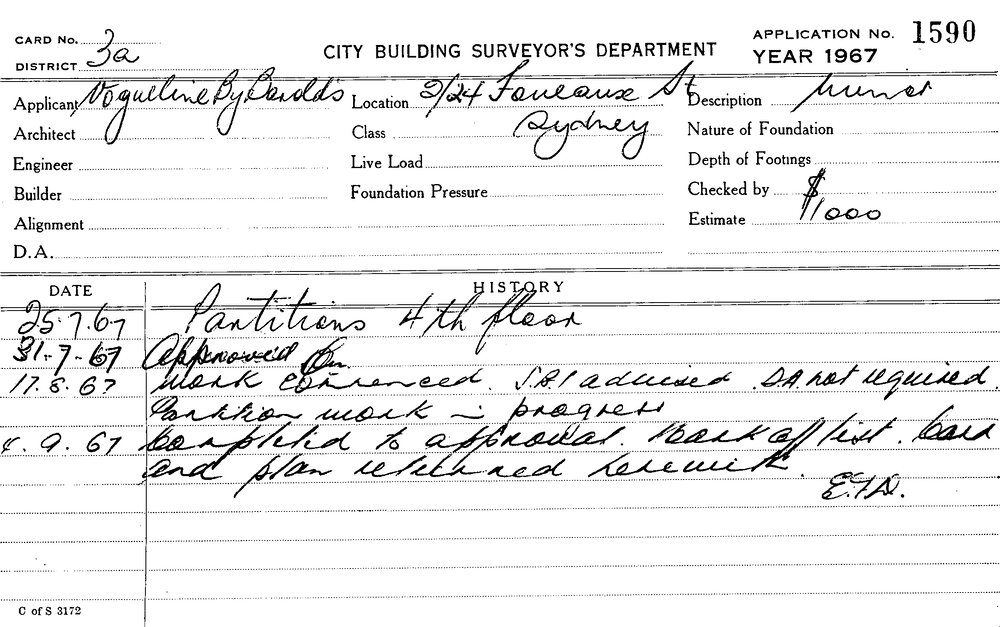 CARD No.
DISTRICT 3a
CITY BUILDING SURVEYOR'S DEPARTMENT
APPLICATION No. 1590
YEAR 1967
Applicant Vogueline By
Location 2/24 Foveaux St
Sydney
Description Minor
Architect
Class
Nature of Foundation
Engineer
Live Load
Depth of Footings
Builder
Foundation Pressure
Checked by
Alignment
Estimate $1,000
D.A.
DATE
HISTORY
25.7.67 Partitions 4th floor
31-7-67 Approved
17.8.67 Work commenced. advised DA not required.
Partition work in progress
4.9.67 Completed to approval. Mark off list. Card
and plan returned herewith.
E.T.D.
C of S 3172